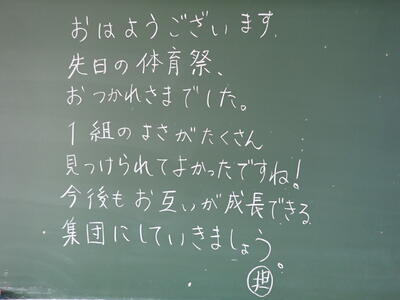 おはようございます.
先日の体育祭、
おつかれさまでした。
1組のよさがたくさん
見つけられてよかったですね!
今後もお互いが成長できる
集団にしていきましょう。
担